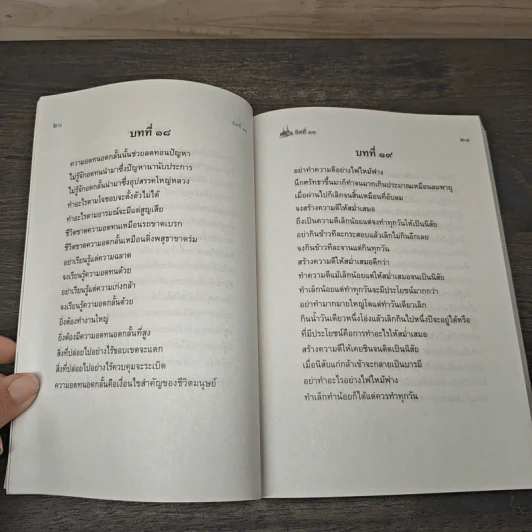 ๒๐
บทที่ ๑๘
ความอดทนอดกลั้นนั้นช่วยลดทอนปัญหา
ไม่รู้จักอดทนนำมาซึ่งปัญหานานับประการ
ไม่รู้จักอดกลั้นนำมาซึ่งอุปสรรคใหญ่หลวง
ทำอะไรตามใจชอบจะตั้งตัวไม่ได้
ทำอะไรตามอารมณ์จะมีแต่สูญเสีย
ชีวิตขาดความอดทนเหมือนรถขาดเบรก
ชีวิตขาดความอดกลั้นเหมือนดิ่งพสุธาขาดร่ม
อย่าเรียนรู้แต่ความฉลาด
จงเรียนรู้ความอดทนด้วย
อย่าเรียนรู้แต่ความเก่งกล้า
จงเรียนรู้ความอดกลั้นด้วย
ยิ่งต้องทำงานใหญ่
ยิ่งต้องมีความอดทนอดกลั้นที่สูง
สิ่งที่ปล่อยไปอย่างไร้ขอบเขตจะแตก
สิ่งที่ปล่อยไปอย่างไร้ควบคุมจะระเบิด
ความอดทนอดกลั้นคือเงื่อนไขสำคัญของชีวิตมนุษย์
๒๑
บทที่ ๑๙
อย่าทำความดีอย่างไฟไหม้ฟาง
นึกศรัทธาขึ้นมาก็ทำจนมากเกินประมาณเหมือนลมพายุ
เมื่อผ่านไปก็เลิกจนสิ้นเหมือนที่อับลม
จงสร้างความดีให้สม่ำเสมอ
ถึงเป็นความดีเล็กน้อยแต่จงทำทุกวันให้เป็นนิสัย
อย่ากินข้าวทีละกระสอบแล้วเลิกไม่กินอีกเลย
จงกินข้าวทีละจานแต่กินทุกวัน
สร้างความดีให้สม่ำเสมอดีกว่า
ทำความดีแม้เล็กน้อยแต่ให้สม่ำเสมอจนเป็นนิสัย
ทำเล็กน้อยแต่ทำทุกวันจะมีประโยชน์มากกว่า
อย่าทำมากมายใหญ่โตแต่ทำวันเดียวเลิก
กินน้ำวันเดียวหนึ่งโอ่งแล้วเลิกกินไปหนึ่งปีจะอยู่ได้หรือ
ที่มีประโยชน์คือการทำอะไรให้สม่ำเสมอ
สร้างความดีให้เคยชินจนติดเป็นนิสัย
เมื่อนิสัยแก่กล้าเข้าจะกลายเป็นบารมี
อย่าทำอะไรอย่างไฟไหม้ฟาง
ทำเล็กทำน้อยก็ได้แต่ควรทำทุกวัน